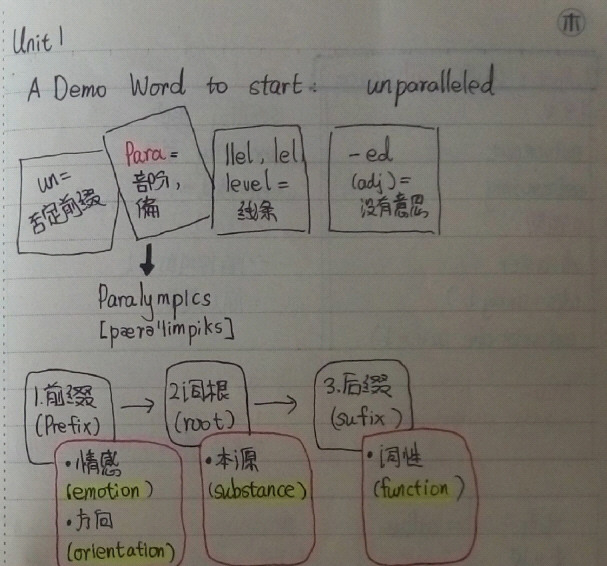 朩
Unit 1
A Demo Word to start: unparalleled
un=
否定前缀
Para=
部分,
偏
llel, lel
level=
线条
-ed
(adj)=
没有意思
Paralympics
[pærə'limpiks]
1.前缀
(Prefix)
2词根
(root)
3.后缀
(sufix)
·情感
(emotion)
·方向
(orientation)
·本源
(substance)
·词性
(function)